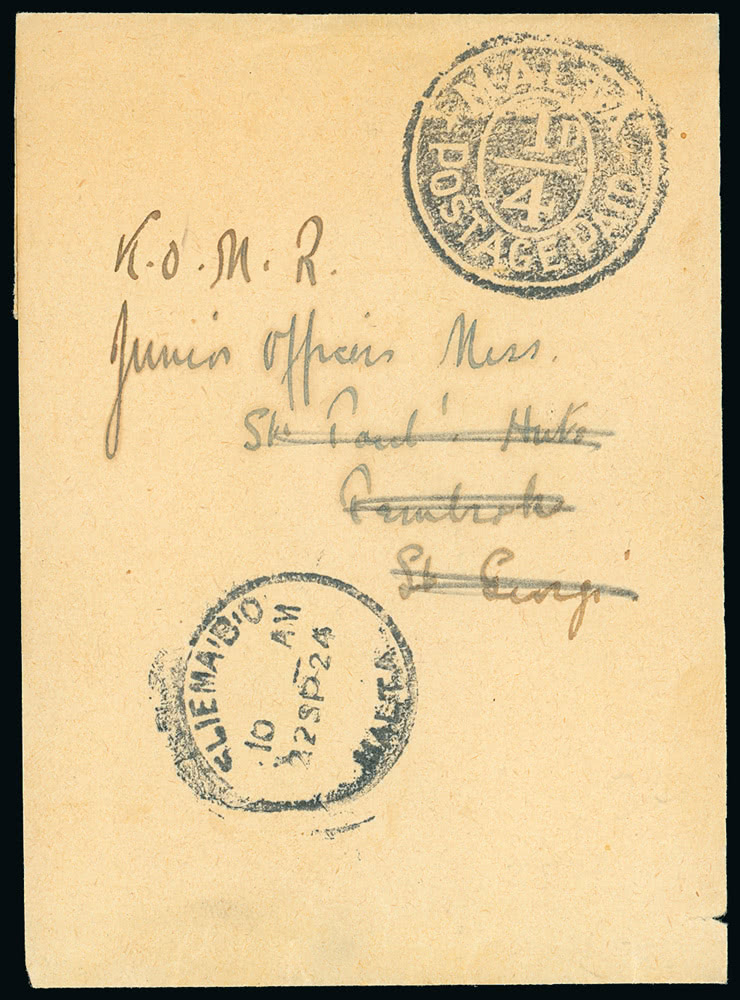 MALTA
1D
4
POSTAGE PAID
K.O.M.R.
Junior Officers Mess.
St. Paul's Huts
Pembroke
St Georges
SLIEMA B.O
10 AM
22SP24
MALTA